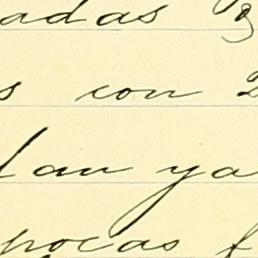 adas
s con
lan ya
pocas f